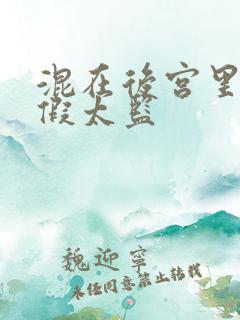 混在後宫里
假太监
魏迎寧
未经同意禁止转载